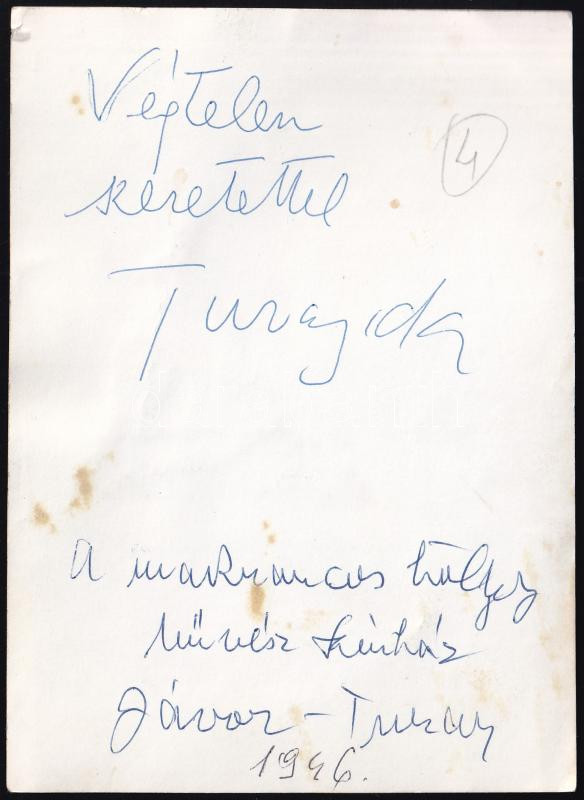 Végtelen
szeretettel
4
Turay Ida
A makrancos hölgy
Művész Színház
Jávor – Turay
1946.